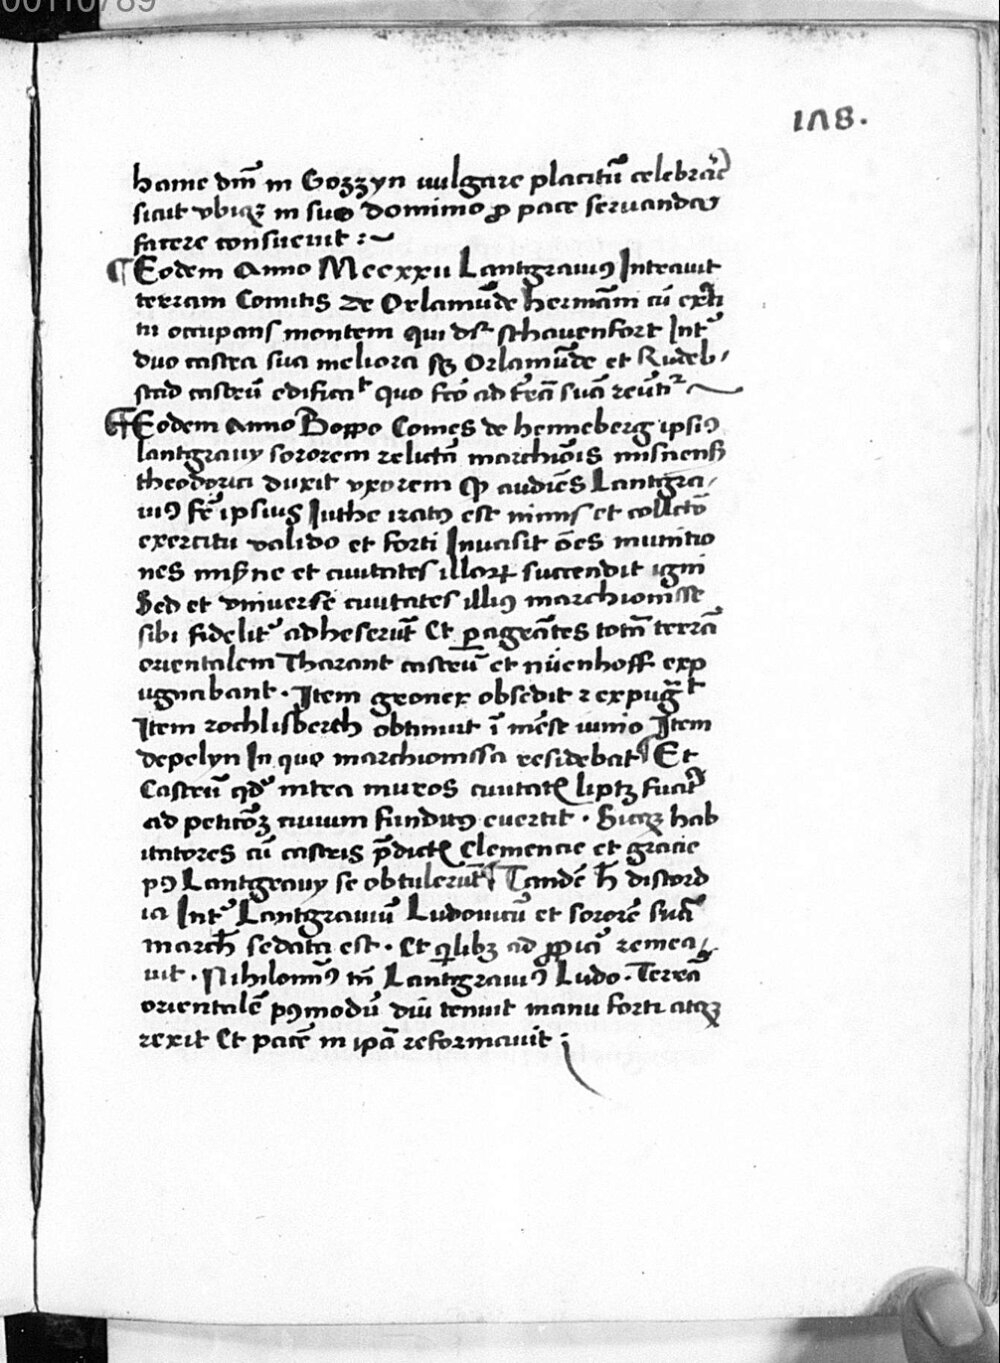 00110789
1Λ8.
hame dm̄ in Gozzyn uulgare placitū celebrar̄e
sicut vbiqꝫ in suo dominio ꝓ pace seruanda
facere consueuit :~
¶ Eodem Anno Mccxxii Lantgrauiꝰ Intrauit
terram Comitis de Orlamūde hermāni cū exer̄ci
tu occupans montem qui dr̄ schauenfort Int̾
duo castra sua meliora sꝫ Orlamūde et Rudel-
stad castrū edificat quo fc̄o ad t̄rā suā reūtit̾ ~
¶ Eodem Anno Boppo Comes de henneberg ipsiꝰ
lantgrauy sororem relictā marchiōis misnensꝭ
theodorici duxit vxorem Qꝫ audiēs Lantgra-
uiꝰ fr̄ ipsius Juthe iratꝰ est nimis et collecto
exercitu valido et forti Inuasit ōes munitio
nes misne et ciuitates illarꝝ succendit igni
Sed et vniuerse ciuitates illiꝰ marchionisse
sibi fidelit̾ adheserūt Et ꝑagrātes totā terrā
orientalem Tharant castrū et nüenhoff exp
ugnabant · Item groner obsedit ⁊ expugᷓt
Item rochlisberch obtinuit ī mēse iunio Item
depelyn In quo marchionissa residebat ¶ Et
Castrū qd̾ intra muros ciuitatꝭ liptz fuat̾
ad peticōꝫ ciuium funditꝰ euertit · Sicqꝫ hab
itatores cū castris p̄dictꝭ Clemencie et gracie
pꝰ Lantgrauy se obtulerūt ¶ Tandē h̄ discord
ia Int̾ Lantgrauiū Ludouicū et sororē suā
march̄ sedata est · Et qͥlibꝫ ad ꝓpͥa remea-
uit · Nihilominꝰ tn̄ Lantgrauiꝰ Ludo · Terrā
orientalē pꝰmodū diu tenuit manu forti atqꝫ
rexit Et pacē in ipā reformauit ;